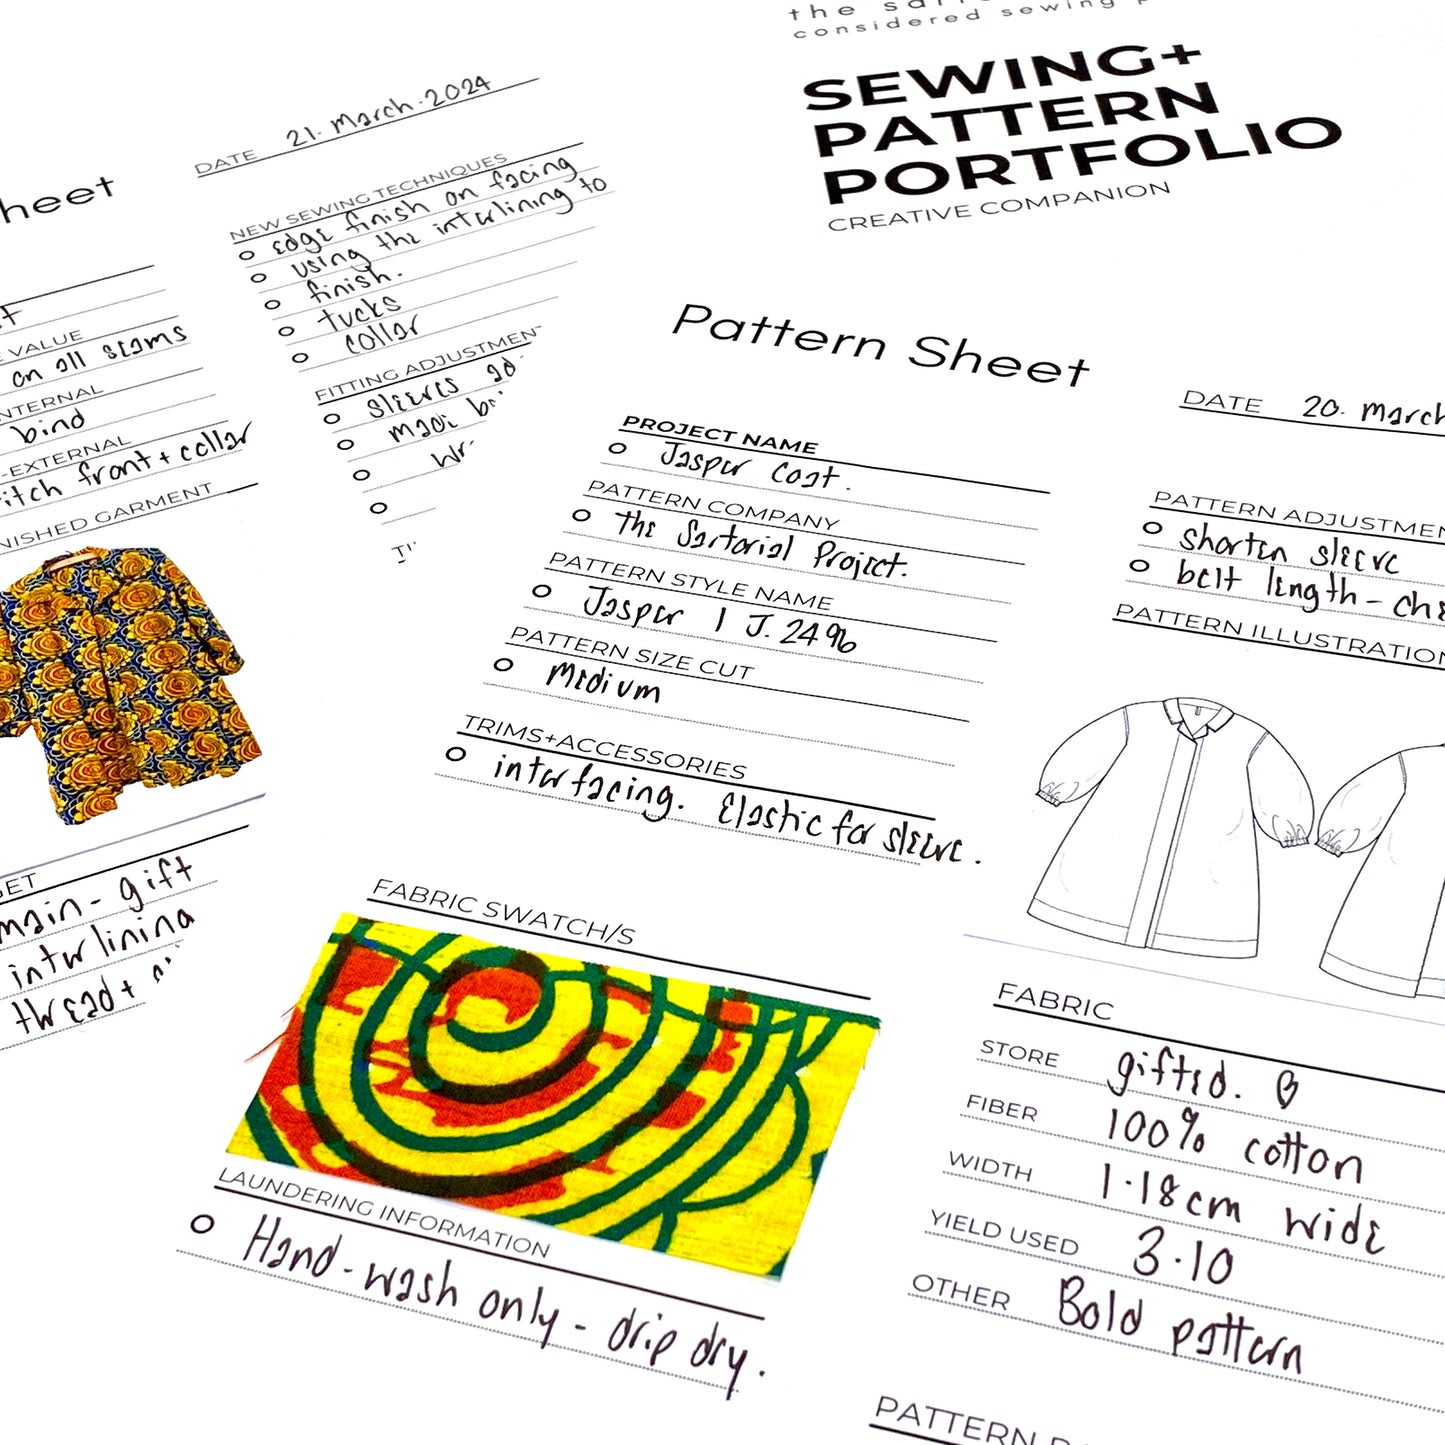 considered sewing
SEWING+
PATTERN
PORTFOLIO
CREATIVE COMPANION
DATE 21. March. 2024
NEW SEWING TECHNIQUES
edge finish on facing
using the interlining to
finish.
tucks
collar
FITTING ADJUSTMEN
sleeves
made
VALUE
on all seams
bind
-EXTERNAL
front + collar
main - gift
interlining
thread +
Pattern Sheet
DATE 20. March
PROJECT NAME
Jasper Coat.
PATTERN COMPANY
The Sartorial Project.
PATTERN STYLE NAME
Jasper | J. 2496
PATTERN SIZE CUT
Medium
TRIMS+ACCESSORIES
interfacing. Elastic for sleeve.
PATTERN ADJUSTMEN
shorten sleeve
belt length -
PATTERN ILLUSTRATION
FABRIC SWATCH/S
LAUNDERING INFORMATION
Hand-wash only - drip dry.
FABRIC
STORE gifted.
FIBER 100% cotton
WIDTH 1.18cm wide
YIELD USED 3.10
OTHER Bold pattern
PATTERN